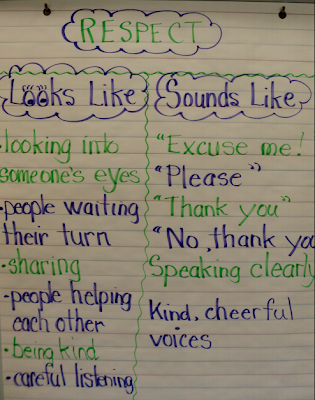 RESPECT
Looks Like
•looking into
someone's eyes
•people waiting
their turn
•sharing
•people helping
each other
•being kind
•careful listening
Sounds Like
"Excuse me!
"Please"
"Thank you"
"No, thank you
Speaking clearly
Kind, cheerful
voices